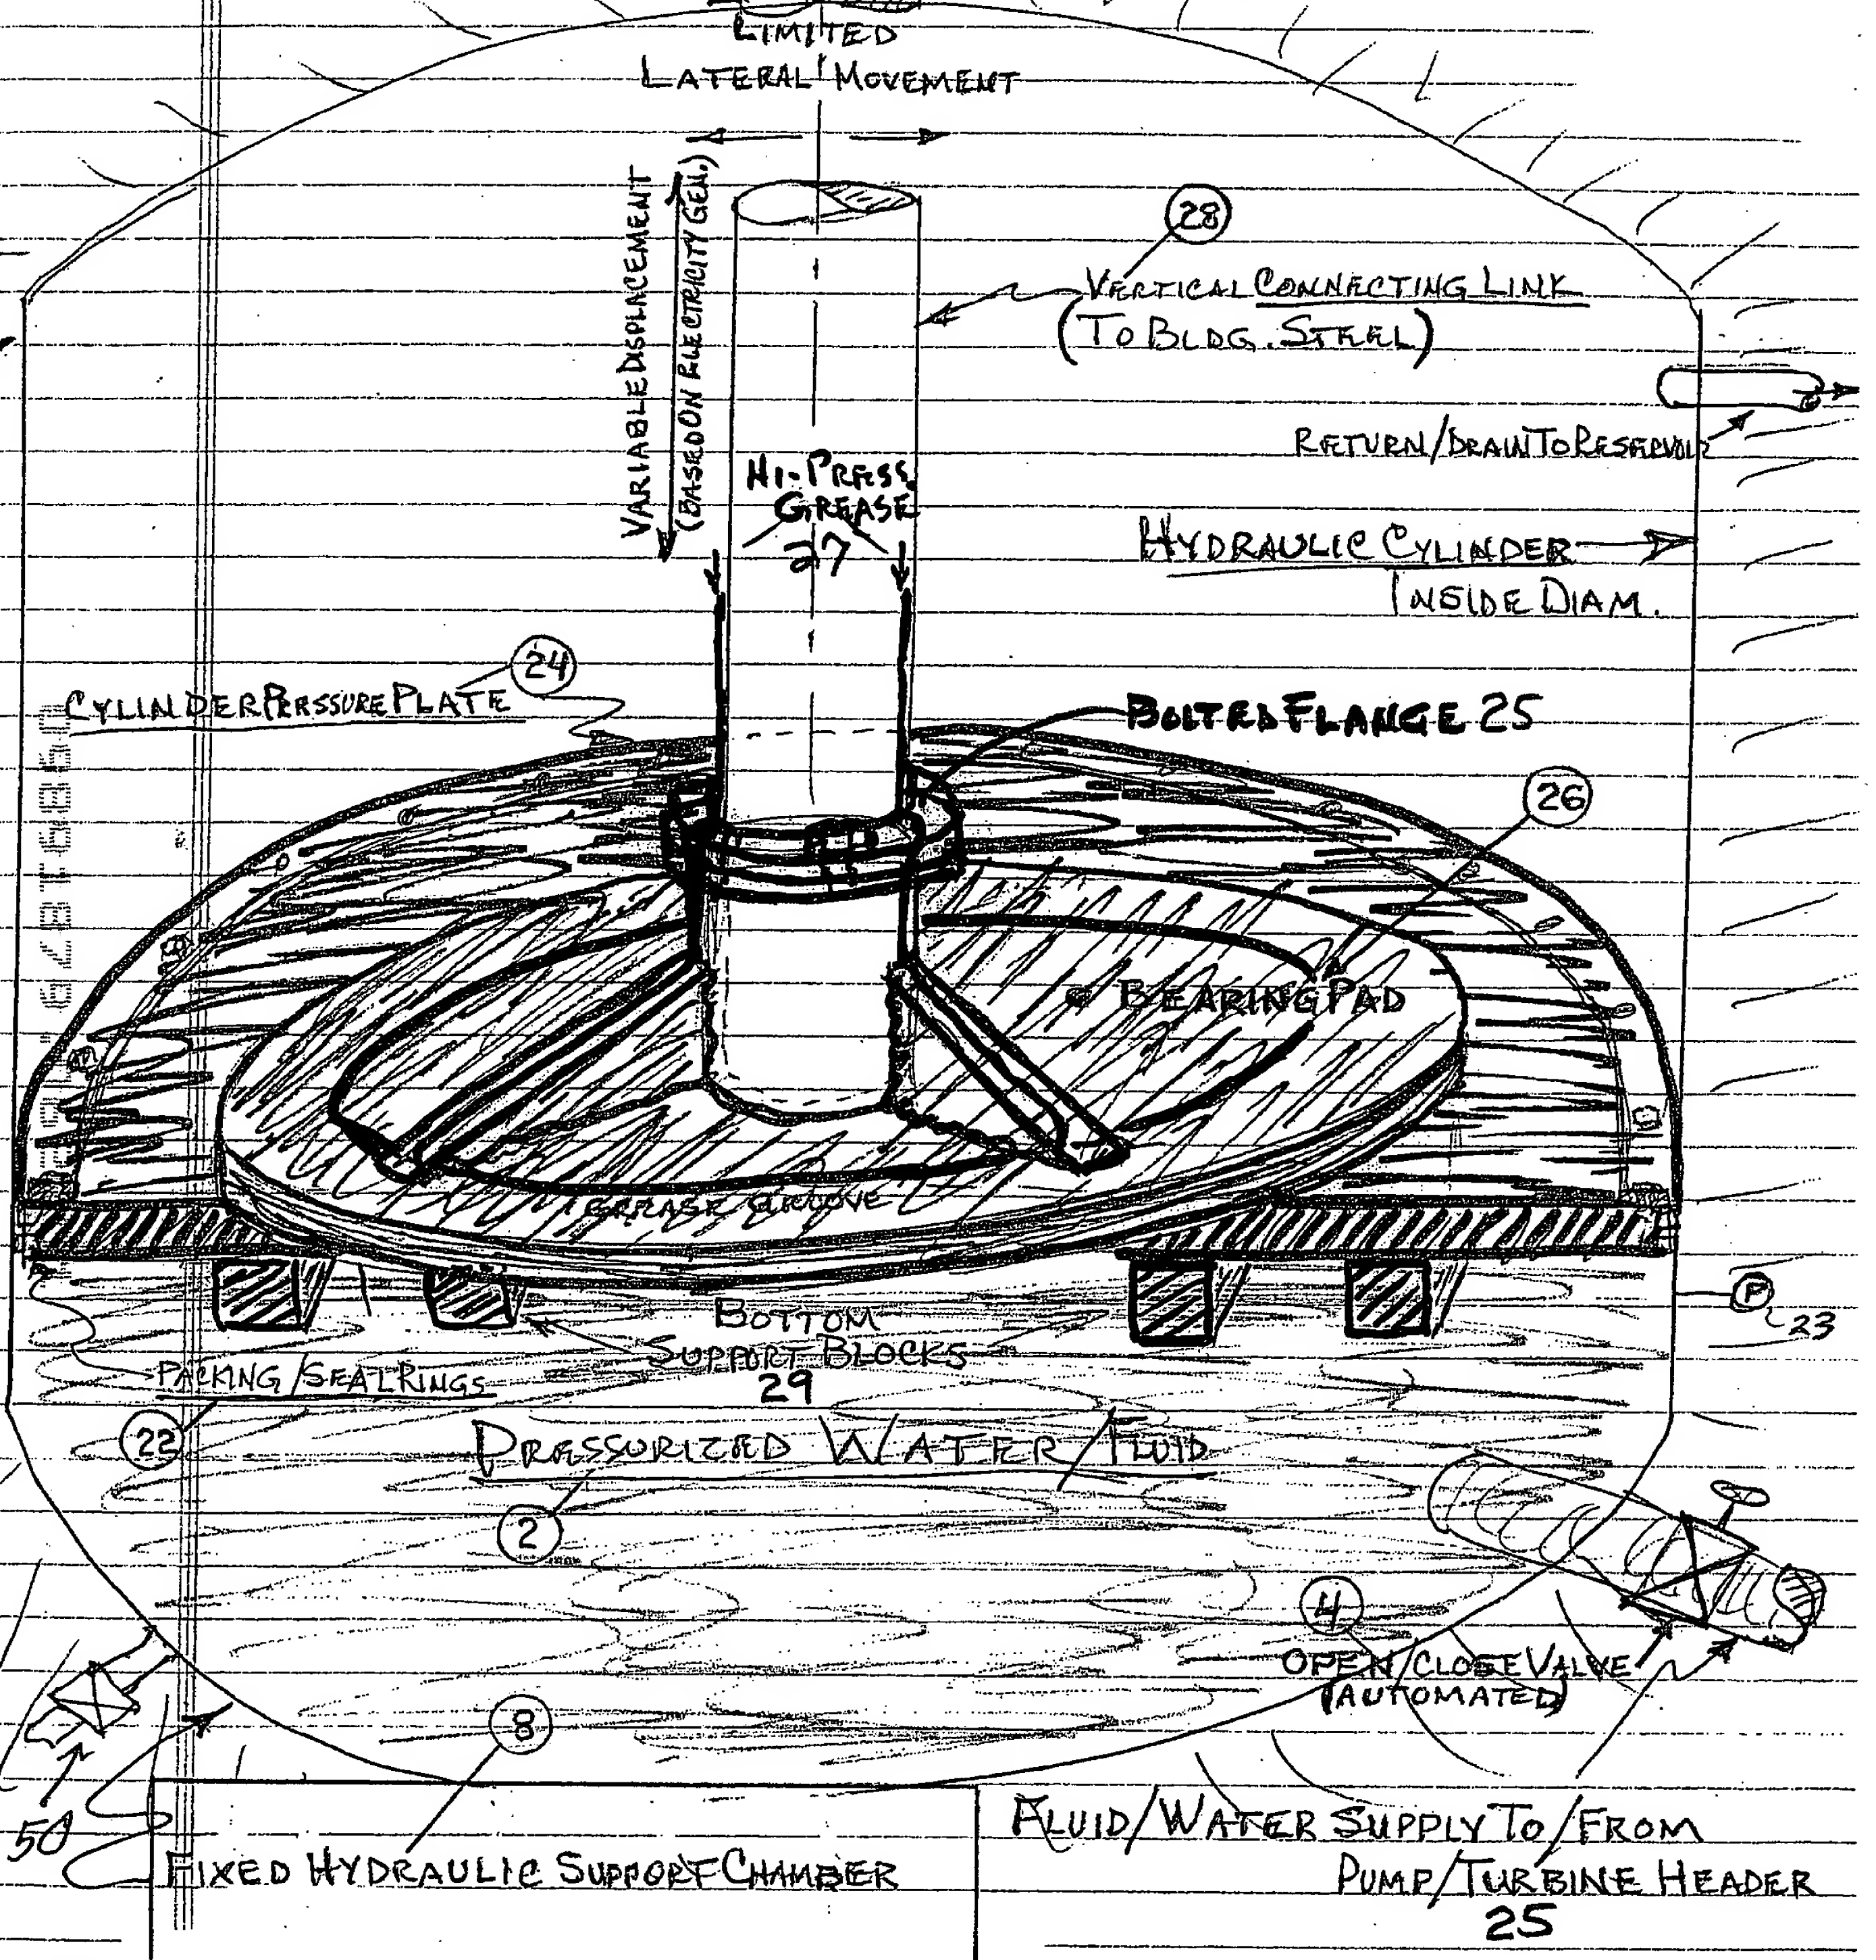 LIMITED
LATERAL MOVEMENT
VARIABLE DISPLACEMENT
(BASED ON ELECTRICITY GEN.)
28
VERTICAL CONNECTING LINK
(TO BLDG. STEEL)
RETURN/DRAIN TO RESERVOIR
HI-PRESS.
GREASE
27
HYDRAULIC CYLINDER
INSIDE DIAM.
24
CYLINDER PRESSURE PLATE
BOLTED FLANGE 25
26
BEARING PAD
GREASE GROOVE
P
23
BOTTOM
SUPPORT BLOCKS
29
PACKING/SEAL RINGS
22
PRESSURIZED WATER/FLUID
2
4
OPEN/CLOSE VALVE
(AUTOMATED)
8
50
FIXED HYDRAULIC SUPPORT CHAMBER
FLUID/WATER SUPPLY TO/FROM
PUMP/TURBINE HEADER
25